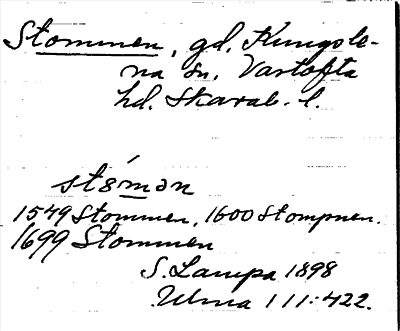 Stommen, gd. Kungsle-
na sn. Vartofta
hd. Skarab. l.
stómən
1549 Stommen, 1600 Stompnen.
1699 Stommen
S. Lampa 1898
Ulma 111:422.